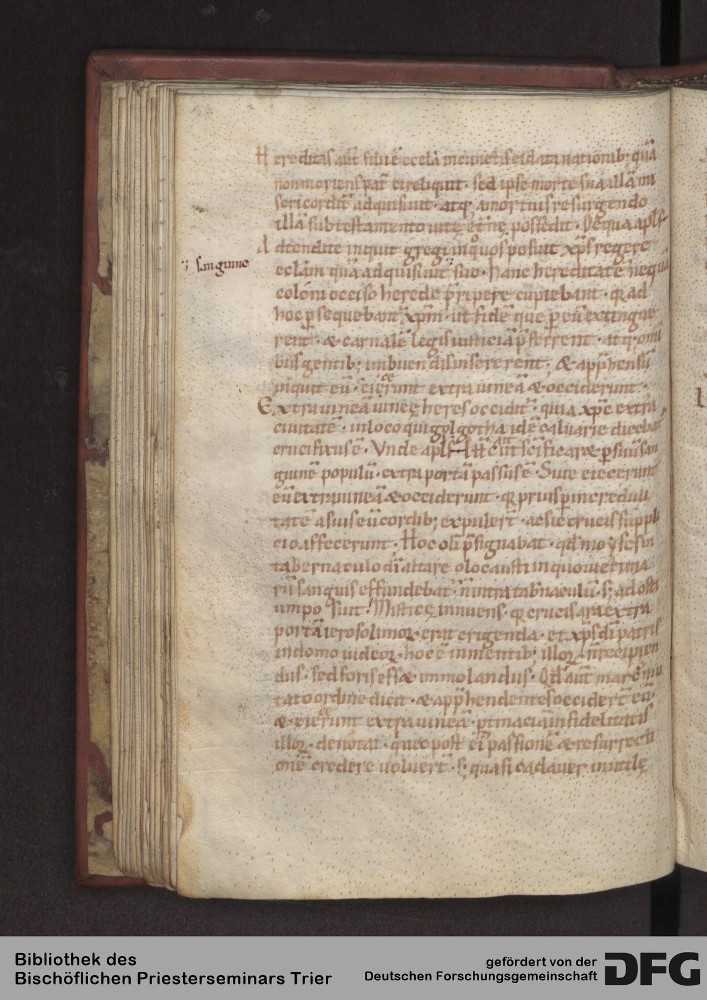 Hereditas aut̄ filii ē ecclā in cunctis ei data nationib; quā
non moriens pat̄ ei reliquit · sed ipse morte sua illā mi
sericordit̄ adquisiuit · atq; a mortuis resurgendo
illā sub testamento uite et̄nę possedit · De qua apl̄s
Adtendite inquit gregi in quo uos posuit xp̄s regere
ꝫ sanguine
ecclām quā adquisiuit suo · hanc hereditatē nequā
coloni occiso herede p̄ripere cupiebant · q; ad
hoc ꝑsequebant̄ xp̄m · ut fidē que ꝑ eū ē extingue
rent · & carnalē legis iusticiā p̄ferrent · atq; omī
bus gentib; inbuendis insererent · & app̄hensū
inquit eū · eiecerunt extra uineā & occiderunt ·
Extra uineā uineę heres occidit̄ · quia xp̄c extra
ciuitatē · in loco qui golgotha idē caluarie dicebat̄
crucifixus ē · Vnde apl̄s · Ih̄c aut̄ ut sc̄ificaret ꝑ suū san
guinē populū · extra portā passus ē · Siue eiecerunt
eū extra uineā & occiderunt · q; prius ꝑ incredu li
tatē a suis eū cordib; expulert̄ · ac sic crucis suppli
cio affecerunt · Hoc oli p̄signabat · qd̄ moyses in
tabernaculo dī altare olocausti in quo uictima
rū sanguis effundebat̄ · n̄ intra tab̄naculū · s; ad osti
um posuit · Mistice innuens · q; crucis ara extra
portā ierosolimoꝝ · erat erigenda · et xp̄s dī patris
in domo iudeoꝝ · hoc ē in mentib; illoꝝ · n̄ recipien
dus · sed foris esset immolandus · Qd̄ aut̄ marc̄ mu
tato ordine dicit · & app̄hendentes occidert̄ eū ·
& eiecerunt extra uineā · ꝑtinacia infidelitatis
illoꝝ · denotat · qui nec post ei passionē & resurrecti
onē credere uoluert̄ · s; quasi cadauer inutile
Bibliothek des
Bischöflichen Priesterseminars Trier
gefördert von der
Deutschen Forschungsgemeinschaft
DFG